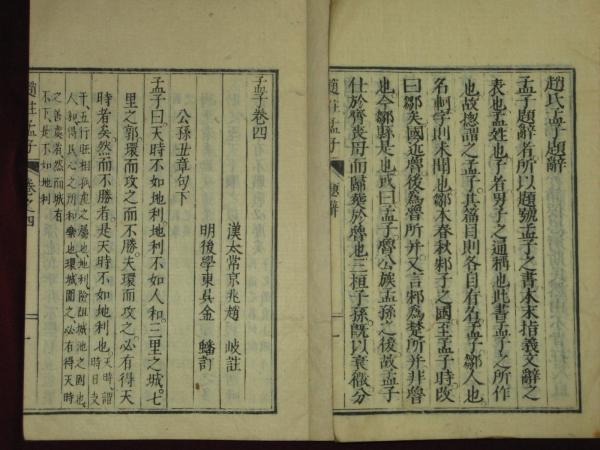 趙氏孟子題辭
孟子題辭者所以題號孟子之書本末指義文辭之
表也孟姓也子者男子之通稱也此書孟子之所作
也故總謂之孟子其篇目則各自有名孟子鄒人也
名軻字則未聞也鄒本春秋邾子之國至孟子時改
曰鄒矣國近魯後爲魯所并又言邾爲楚所并非魯
也今鄒縣是也或曰孟子魯公族孟孫之後故孟子
仕於齊喪母而歸葬於魯也三桓子孫既以衰微分
趙註孟子
題辭
一
孟子卷四
漢太常京兆趙 岐註
明後學東吳金 蟠訂
公孫丑章句下
孟子曰天時不如地利地利不如人和三里之城七
里之郭環而攻之而不勝夫環而攻之必有得天
時者矣然而不勝者是天時不如地利也天時謂時日支
干五行旺相孤虛之屬也地利險阻城池之固也
人和得民心之所和樂也環城圍之必有得天時
之善處者然而城有
不下是不如地利
趙註孟子
卷之四
一